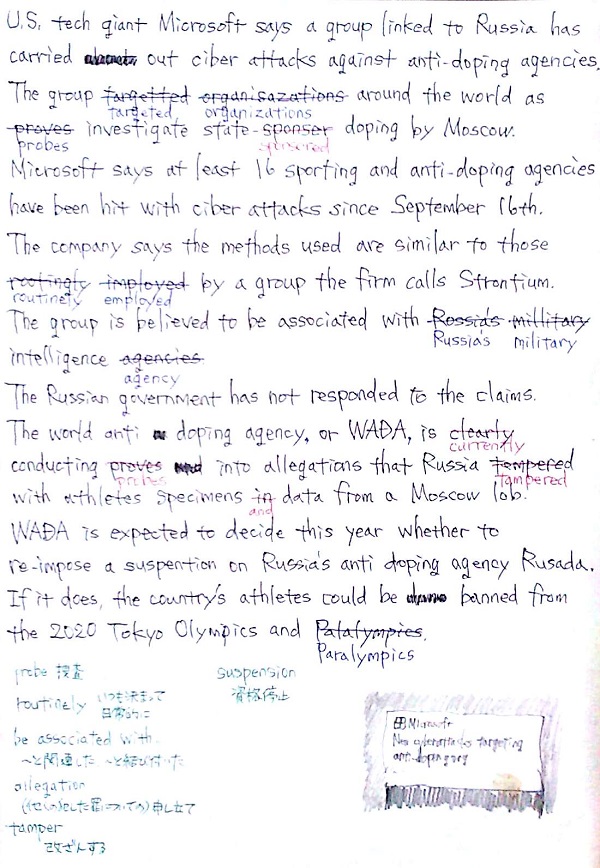 U.S. tech giant Microsoft says a group linked to Russia has
carried out ciber attacks against anti-doping agencies.
The group targetted organisazations around the world as
targeted, organizations
proves investigate state-sponser doping by Moscow.
probes sponsered
Microsoft says at least 16 sporting and anti-doping agencies
have been hit with ciber attacks since September 16th.
The company says the methods used are similar to those
rootingly imployed by a group the firm calls Strontium.
routinely employed
The group is believed to be associated with Rossia's millitary
Russia's military
intelligence agencies.
agency
The Russian government has not responded to the claims.
The world anti doping agency, or WADA, is clearly
currently
conducting proves into allegations that Russia tempered
probes tampered
with athletes specimens in data from a Moscow lob.
and
WADA is expected to decide this year whether to
re-impose a suspention on Russia's anti doping agency Rusada.
If it does, the country's athletes could be banned from
the 2020 Tokyo Olympics and Palalympics.
Paralympics
probe 捜査
suspension
資格停止
routinely いつも決まって
日常的に
be associated with
〜と関連した 〜と結び付いた
allegation
申し立て
tamper
改ざんする
Microsoft
New cyberattacks targeting
anti-doping org